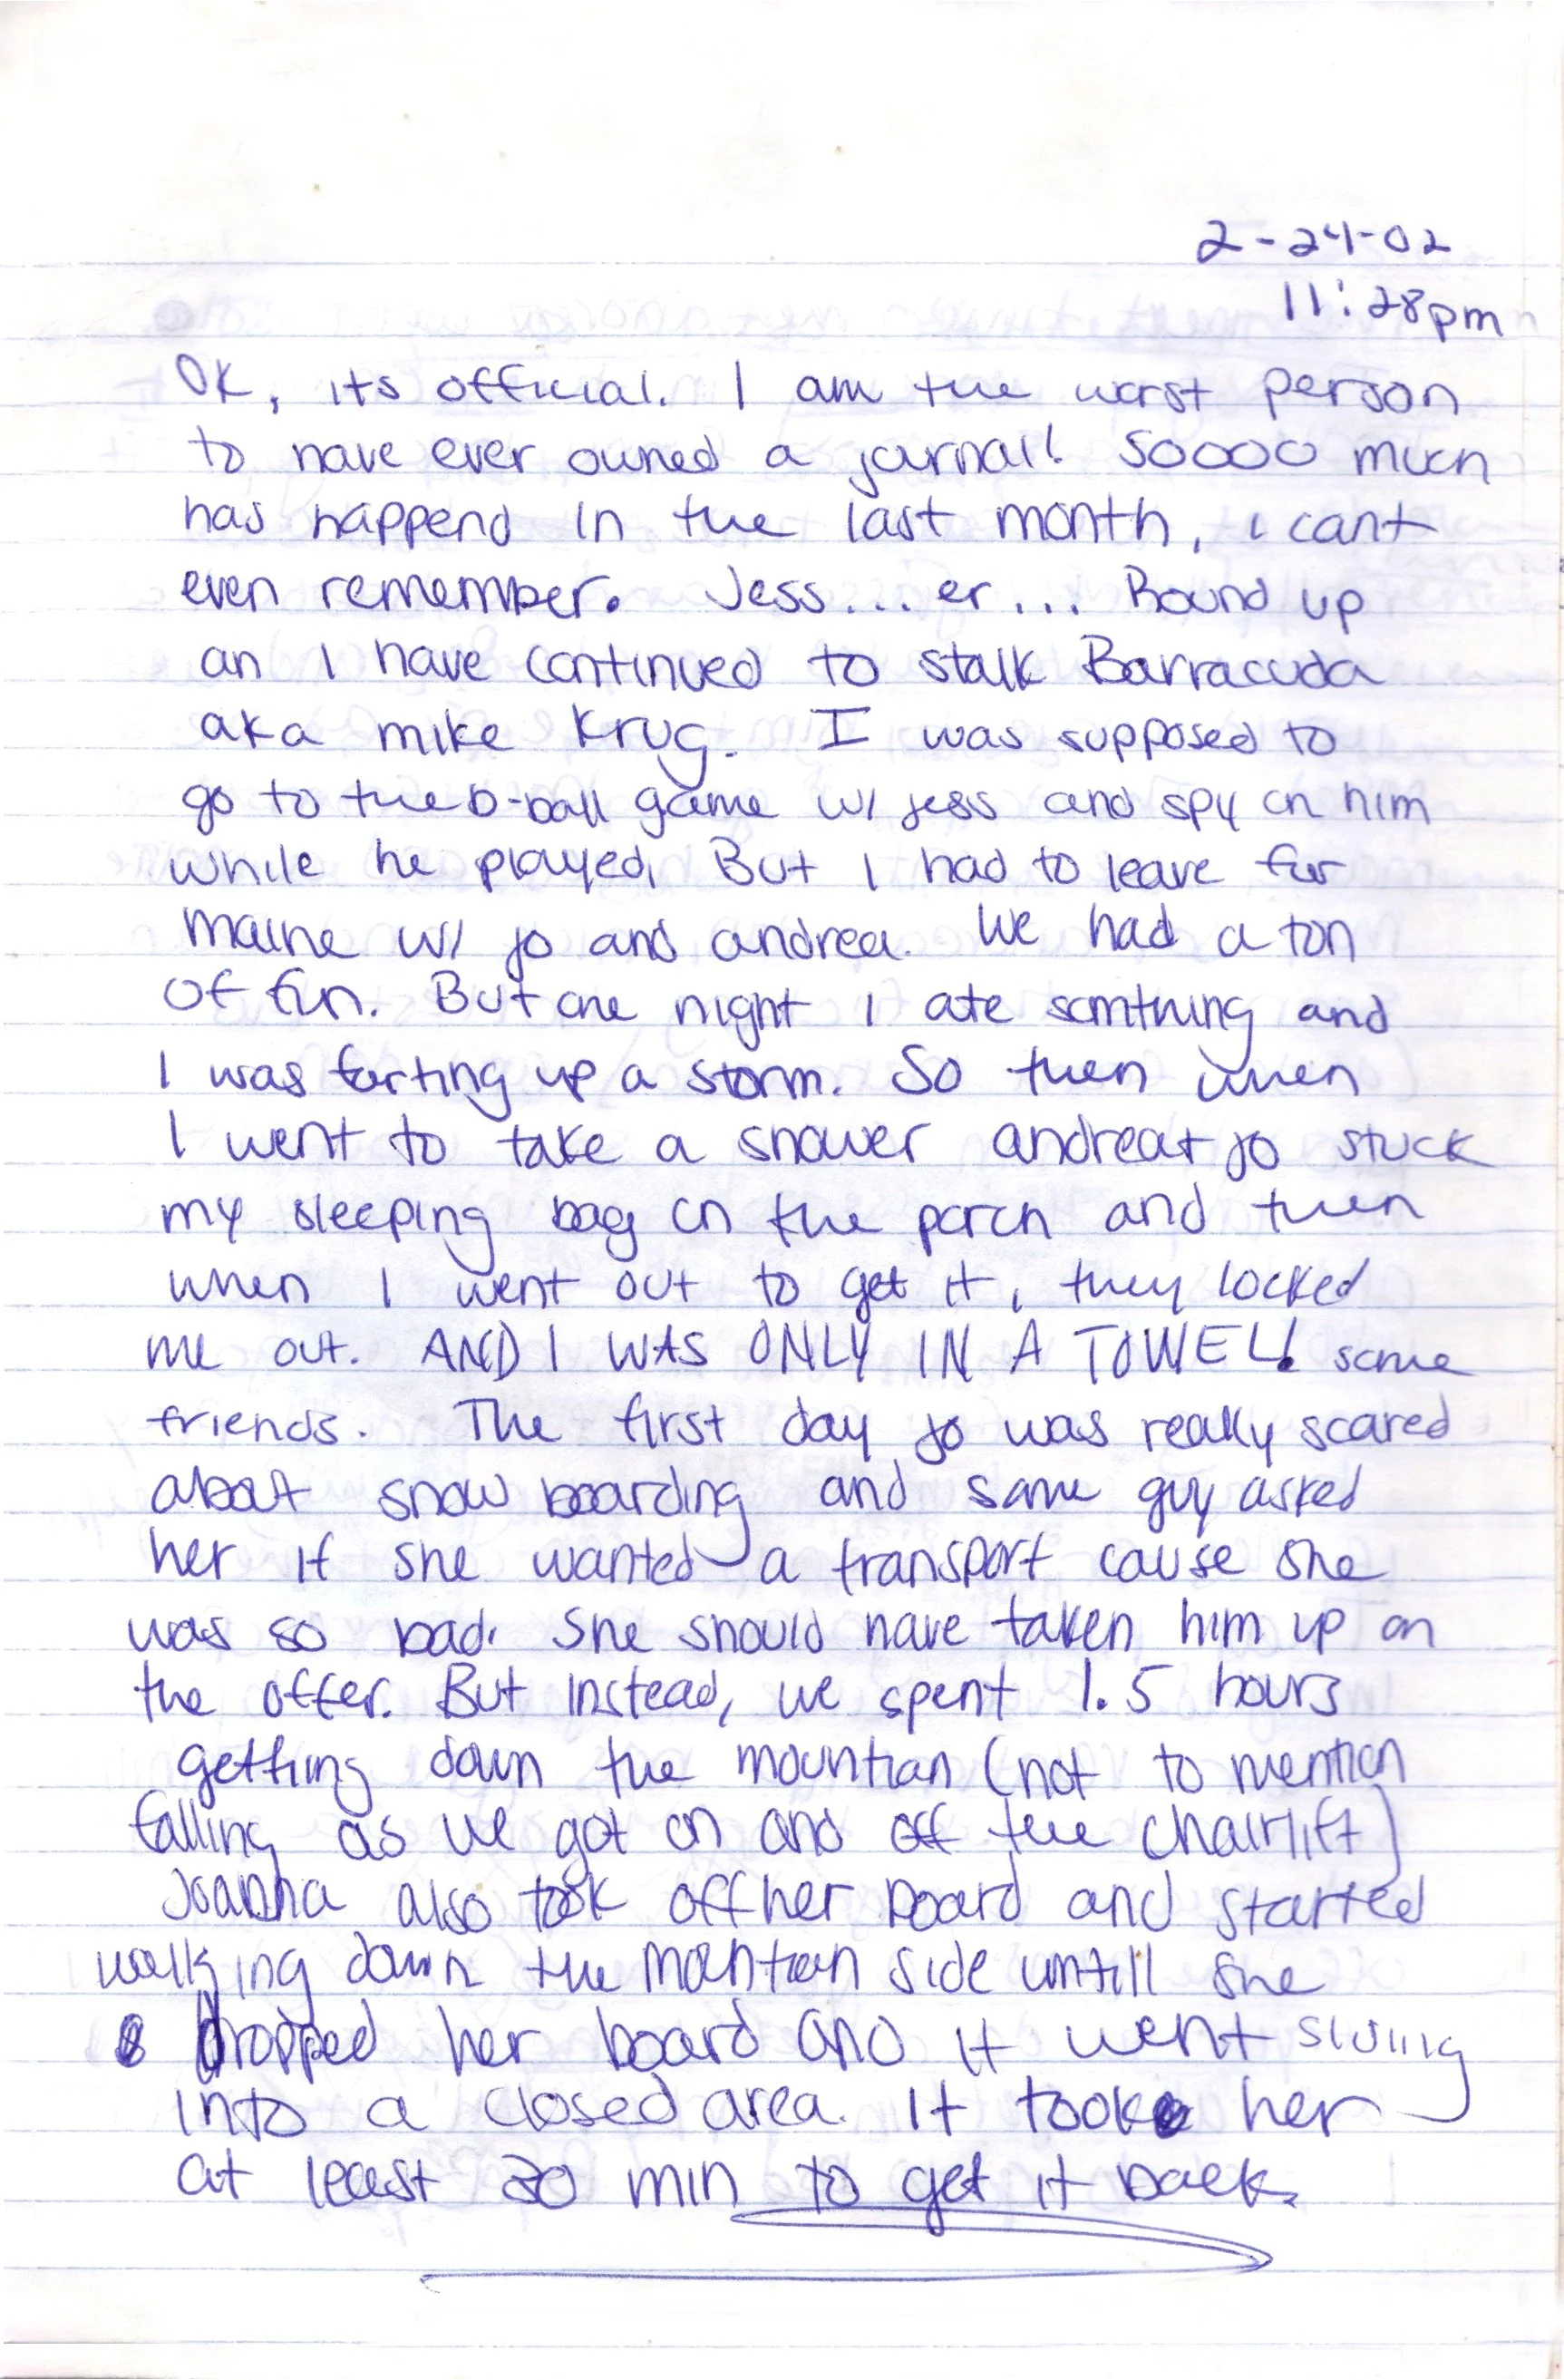 2-24-02
11:28pm
OK, its official. I am the worst person
to have ever owned a journal! Soooo much
has happend in the last month, i cant
even remember. Jess... er... Round up
an I have continued to stalk Barracuda
aka mike Krug. I was supposed to
go to the b-ball game w/ jess and spy on him
while he played, But I had to leave for
maine w/ jo and andrea. We had a ton
of fun. But one night I ate somthing and
I was farting up a storm. So then when
I went to take a shower andrea + jo stuck
my sleeping bag on the porch and then
when I went out to get it, they locked
me out. AND I WAS ONLY IN A TOWEL! some
friends. The first day jo was really scared
about snow boarding and some guy asked
her if she wanted a transport cause she
was so bad. She should have taken him up on
the offer. But instead, we spent 1.5 hours
getting down the mountian (not to mention
falling as we got on and off the chairlift)
Joanna also took off her board and started
walking down the mountian side untill she
dropped her board and it went sliding
into a closed area. It took her
at least 30 min to get it back.